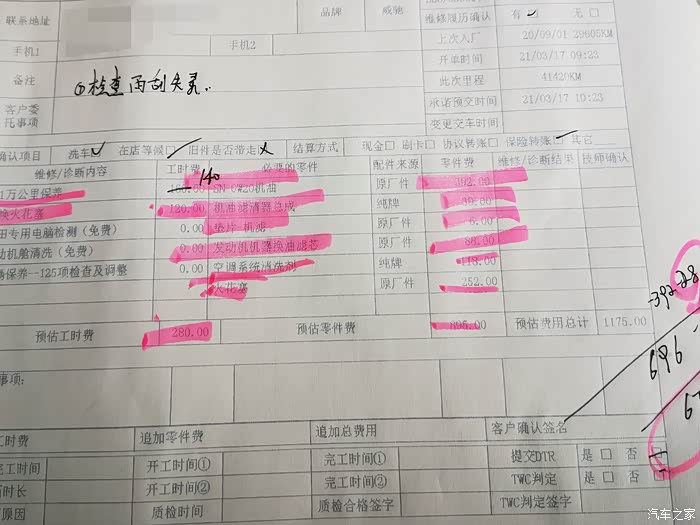 联系地址
品牌 威驰
维修履历确认 有 无
手机1 手机2
上次入厂 20/09/01 29605KM
开单时间 21/03/17 09:23
备注 ①检查雨刮
此次里程 41420KM
承诺预交时间 21/03/17 10:23
客户委
托事项
变更交车时间
确认项目 洗车 在店等候 旧件是否带走 结算方式 现金 刷卡 协议转账 保险转账 其它
维修/诊断内容 工时费 必要的零件 配件来源 零件费 维修/诊断结果 技师确认
140
1万公里保养 160.00 SN 0W20机油 原厂件 392.00
换火花塞 120.00 机油滤清器总成 纯牌 39.00
田专用电脑检测(免费) 0.00 垫片-机滤 原厂件 6.00
动机舱清洗(免费) 0.00 发动机机器换油滤芯 原厂件 88.00
保养--125项检查及调整 0.00 空调系统清洗剂 纯牌 118.00
火花塞 原厂件 252.00
预估工时费 280.00 预估零件费 895.00 预估费用总计 1175.00
696
事项:
工时费 追加零件费 追加总费用 客户确认签名
完工时间 开工时间① 完工时间① 提交DTR 是 否
时长 开工时间② 完工时间② TWC判定 是 否
原因 质检时间 质检合格签字 TWC判定签字
汽车之家